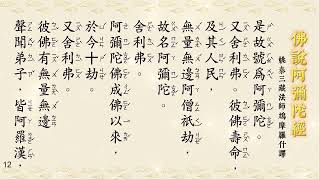 佛說阿彌陀經
姚秦三藏法師鳩摩羅什譯
是故號為阿彌陀。
又舍利弗。彼佛壽命。
及其人民。
無量無邊阿僧祇劫。
故名阿彌陀。
舍利弗。
阿彌陀佛成佛以來。
於今十劫。
又舍利弗。
彼佛有無量無邊
聲聞弟子。皆阿羅漢。
12